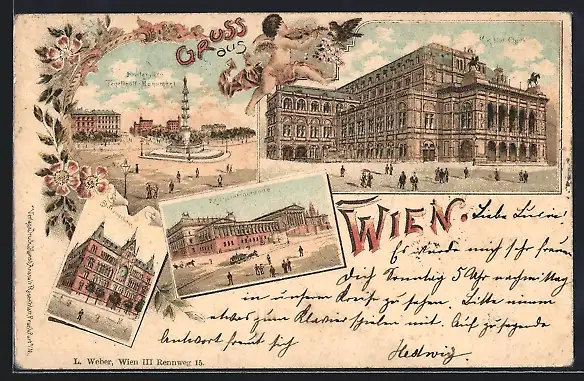 GRUSS
aus
WIEN.
K.k. Hof-Oper
Praterstern
Tegetthoff-Monument
Parlamentsgebäude
Liebe Luise!
Es würde mich sehr freuen
Dich Sonntag 5 Uhr nachmittag
in unserm Kreise zu sehen. Bitte nimm
etwas zum Klavier spielen mit. Auf zusagende
Antwort freut sich
Hedwig.
L. Weber, Wien III Rennweg 15.